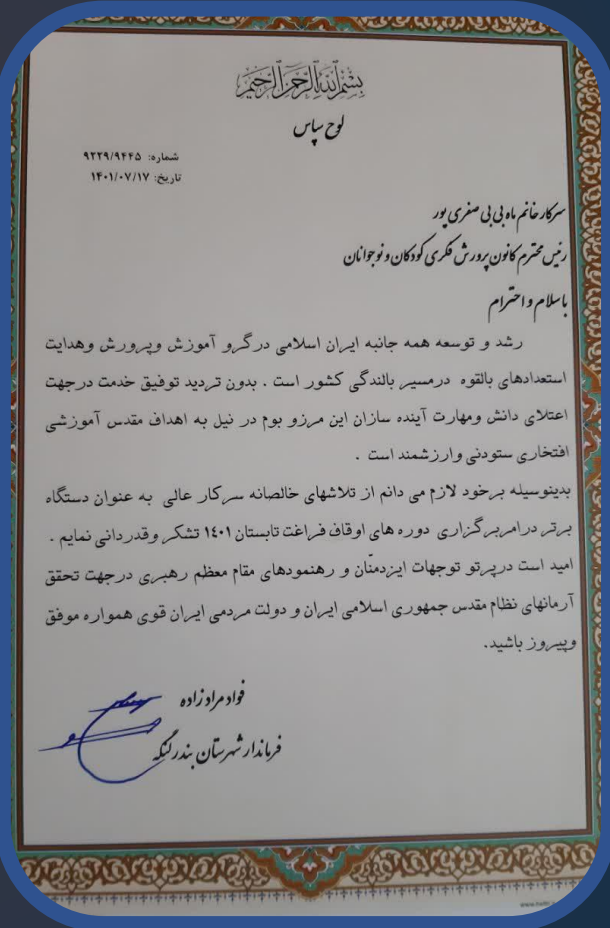 بسم الله الرحمن الرحیم
لوح سپاس
شماره: ۹۲۲۹/۹۴۴۵
تاریخ: ۱۴۰۱/۰۷/۱۷
سرکار خانم ماه بی بی صفری پور
رئیس محترم کانون پرورش فکری کودکان و نوجوانان
باسلام و احترام
رشد و توسعه همه جانبه ایران اسلامی درگرو آموزش وپرورش وهدایت
استعدادهای بالقوه درمسیر بالندگی کشور است . بدون تردید توفیق خدمت درجهت
اعتلای دانش ومهارت آینده سازان این مرزو بوم در نیل به اهداف مقدس آموزشی
افتخاری ستودنی وارزشمند است .
بدینوسیله برخود لازم می دانم از تلاشهای خالصانه سرکار عالی به عنوان دستگاه
برتر درامربرگزاری دوره های اوقاف فراغت تابستان ۱٤۰۱ تشکر وقدردانی نمایم .
امید است درپرتو توجهات ایزدمنّان و رهنمودهای مقام معظم رهبری درجهت تحقق
آرمانهای نظام مقدس جمهوری اسلامی ایران و دولت مردمی ایران قوی همواره موفق
وپیروز باشید.
فواد مراد زاده
فرماندار شهرستان بندرلنگه